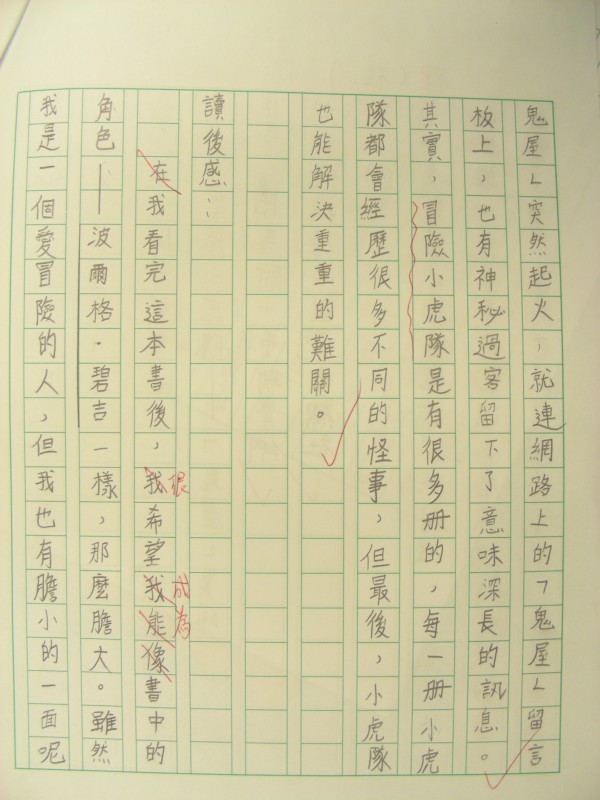 鬼屋」突然起火,就連網路上的「鬼屋」留言
板上,也有神秘過客留下了意味深長的訊息。
其實,冒險小虎隊是有很多册的,每一册小虎
隊都會經歷很多不同的怪事,但最後,小虎隊
也能解決重重的難關。
讀後感:
在我看完這本書後,我希望我能像書中的
很成為
角色——波爾格·碧吉一樣,那麼膽大。雖然
我是一個愛冒險的人,但我也有膽小的一面呢